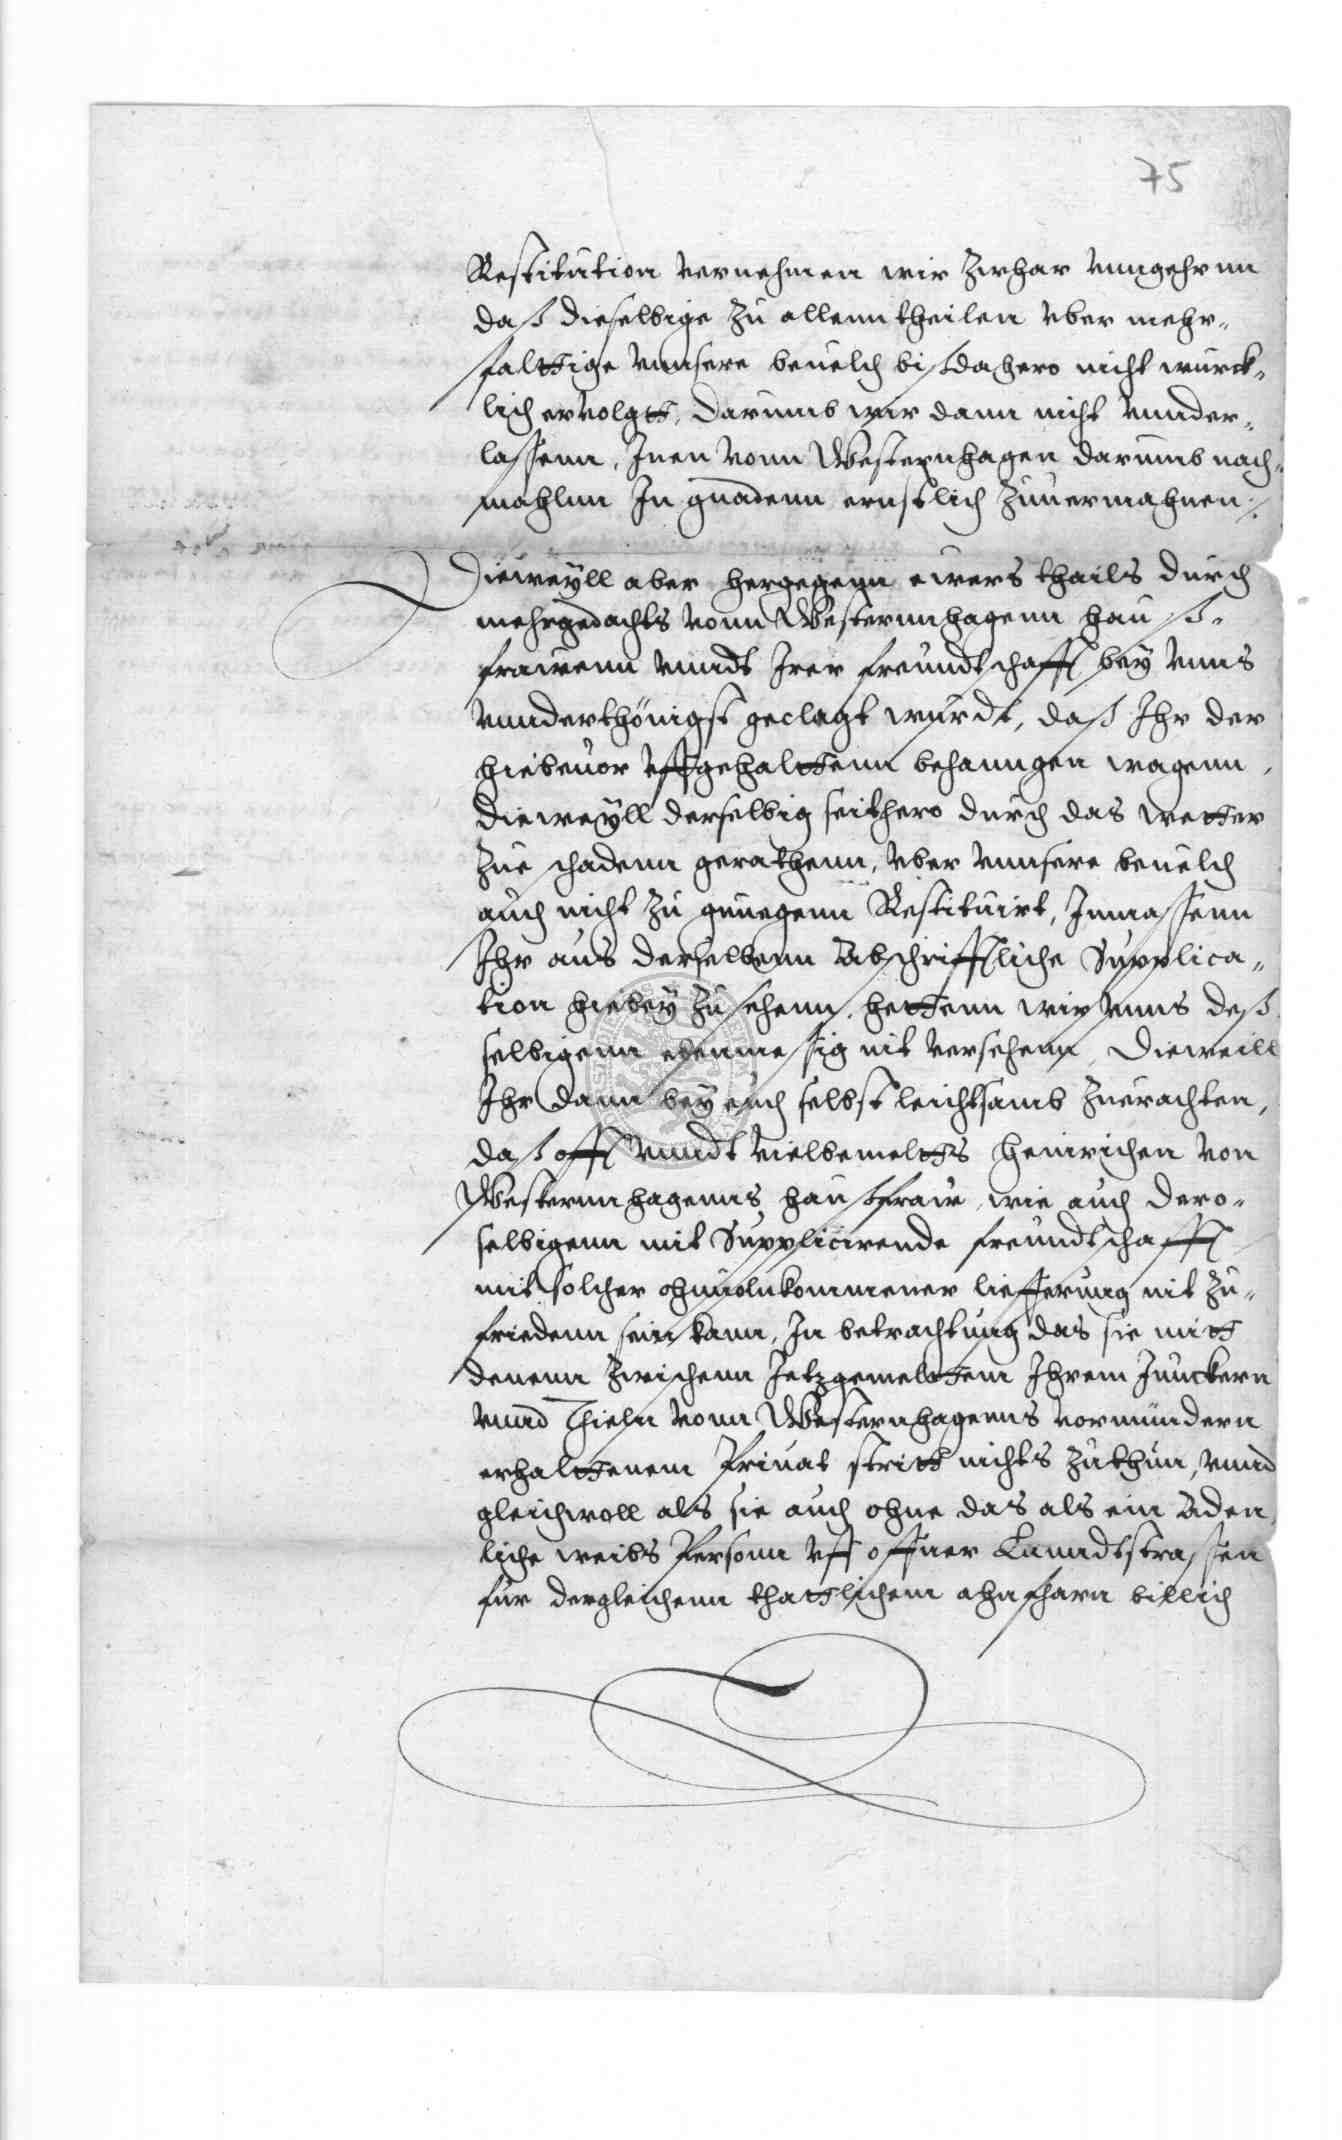 75
Restitution vernehmen wir zwhar vnngehrnn
daß dieselbige zu allenn theilen vber mehr„
falttige vnnsere beuelch biß dahero nicht würck„
lich ervolgtt, darumb wir dann nicht vnnder„
lassenn, Inen vonn Westernhagen darumb nach„
mahlnn In gnadenn ernstlich zuuermahnen
Dieweyll aber hergegenn ewers thails durch
mehrgedachts vonn Westernnhagenn hauß„
frawenn vnndt Irer freundtschafft bey vnns
vnnderthönigst geclagt würdt, daß Ihr der
hiebeuor vffgehalttenn behanngen wagenn,
dieweyll derselbig seithero durch das wetter
zue schadenn gerathenn, vber vnnsere beuelch
auch nicht zu genuegenn Restituirt, Inmassenn
Ihr aus derselbenn Abschrifftliche Supplica„
tion hiebey zu sehenn, hettenn wir vnns deß
selbigenn ebenmessig nit versehenn, Dieweill
Ihr dann bey euch selbst leichtsamb zuerachten,
daß offt vnndt vielbemeltts Heinrichen von
Westernnhagenns haußfraw, wie auch dero„
selbigenn mit Supplicirende freundtschafft
mit solcher ohnuolnkommener lieferung nit zu„
friedenn sein kann, In betrachtung das sie mitt
denenn zwischenn Jetzgemelttem Ihrem Junckern
vnnd Thieln vonn Westernhagenns vormündern
erhalttenem Priuat stritt nichts zuthun, vnnd
gleichwoll als sie auch ohne das als ein Aden„
liche weibs Personn vff offner Lanndtstrassen
für dergleichenn thattlichem ahnfharn billich